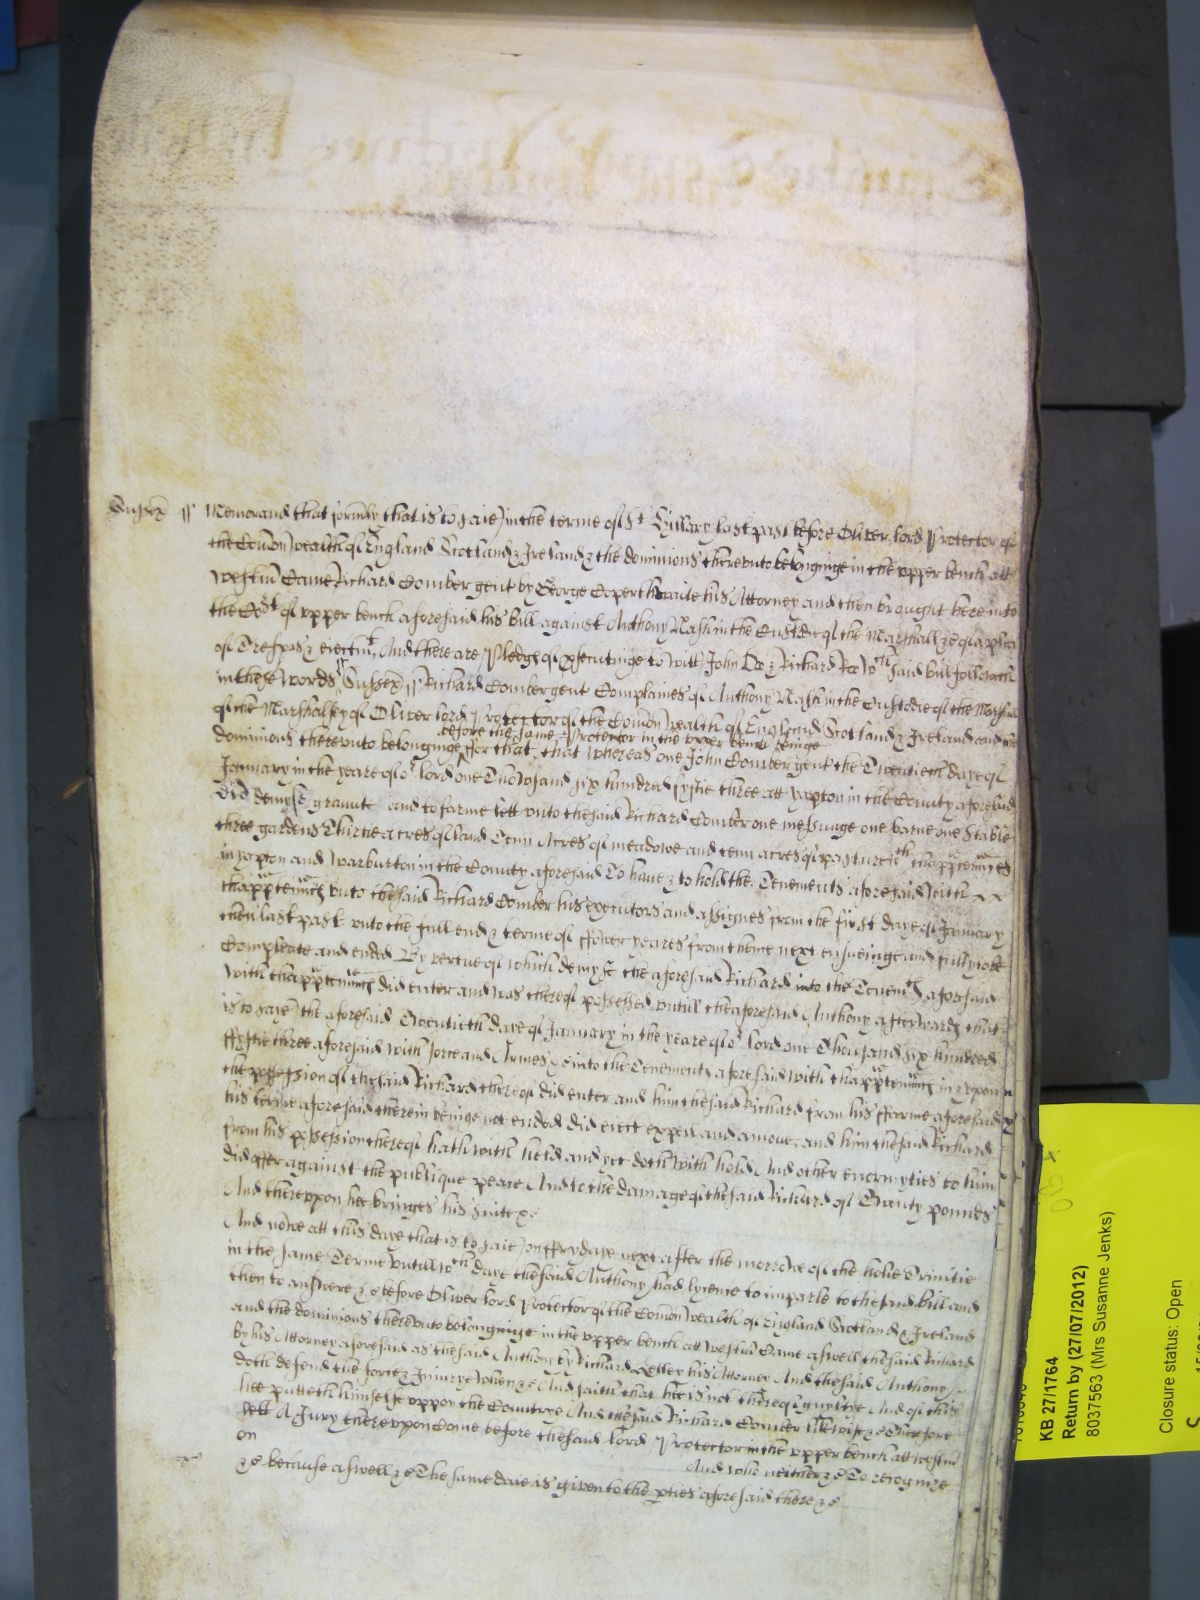 Sussex ss Memorand that formly that is to saie in the terme of St Hyllary last past before Oliver lord Protector of
the Comon wealth of England Scotland & Ireland & the dominions therevnto belonginge in the vpper bench att
Westm Came Richard Comber gent by George Coperthwaite his Attorney and then brought here into
the Cort of vpper bench aforesaid his bill against Anthony Nash in the Custdie of the Marshall &c of a plea
of Trespas & eiectmt And there are Pledge of psecutinge to witt John Do & Richard Roo wch said bill followeth
in these words ss Sussex ss Richard Comber gent Complaines of Anthony Nash in the Custodie of the Marshall
of the Marshalsey of Oliver lord Protector of the Comon wealth of England Scotland & Ireland and the
before the same Protector in the vpper bench beinge
dominions therevnto belonginge ffor that, that whereas one John Comber gent the Twentieth daye of
January in the yeare of or lord one Thowsand six hundred fyftie three att Yapton in the County aforesaid
did demyse graunte and to farme lett vnto the said Richard Comber one messuage one barne one stable
three gardens Thirtie acres of land Tenn Acres of meadowe and tenn acres of pasture wth thapptennces
in Yapton and Warburton in the County aforesaid To have & to hold the Tenements aforesaid with
thapptennces vnto the said Richard Comber his executors and assignes from the first daye of January
then last past vnto the full end & terme of ffower yeares from thence next ensueinge and fully to be
Compleate and ended By vertue of which demyse the aforesaid Richard into the Tenemts aforesaid
with thapptennces did enter and was thereof possessed vntill the aforesaid Anthony afterwards that
is to saye the aforesaid Twentieth daye of January in the yeare of or lord one Thousand six hundred
ffyftie three aforesaid with force and Armes &c into the Tenements aforesaid with thapptennces in & vpon
the possession of the said Richard thereof did enter and him the said Richard from his ffarme aforesaid
his terme aforesaid therein beinge not ended did eiect expell and amove, and him the said Richard
from his possession thereof hath with held and yet doth with hold And other enormyties to him
did offer against the publique peace And to the damage of the said Richard of Twenty pounds
And therevpon hee bringes his suite &c
And nowe att this daye that is to saie on ffrydaye next after the morrowe of the holie Trinitie
in the same Terme vntill wch daye the said Anthony had lycence to imparle to the said bill and
then to answere &c before Oliver lord Protector of the Comon wealth of England Scotland & Ireland
and the dominions therevnto belonginge in the vpper bench att Westm Came aswell the said Richard
by his Attorney aforesaid as the said Anthony by Richard Kelley his Attorney And the said Anthony
doth defend the force & Iniurye when &c And saith that hee is not thereof guyltye And of this
hee putteth himselfe vppon the Countrye And the said Richard Comber likewise &c Therfore
lett A Jury therevppon Come before the said lord Protector in the vpper bench att westm
on And who neither &c To recognize
&c because aswell &c The same daie is given to the pties aforesaid there &c
KB 27/1764
Return by (27/07/2012)
8037563 (Mrs Susanne Jenks)
Closure status: Open